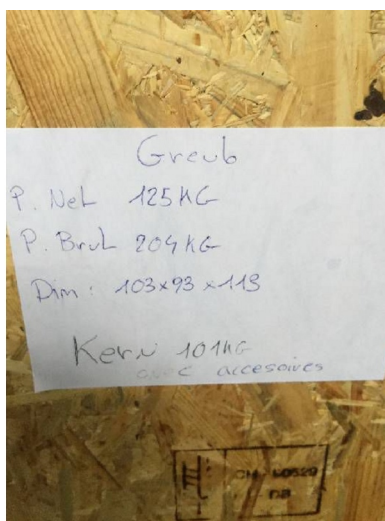 Greub
P. Net 125 KG
P. Brut 204 KG
Dim : 103x93 x113
Kern 101KG
avec accesoires